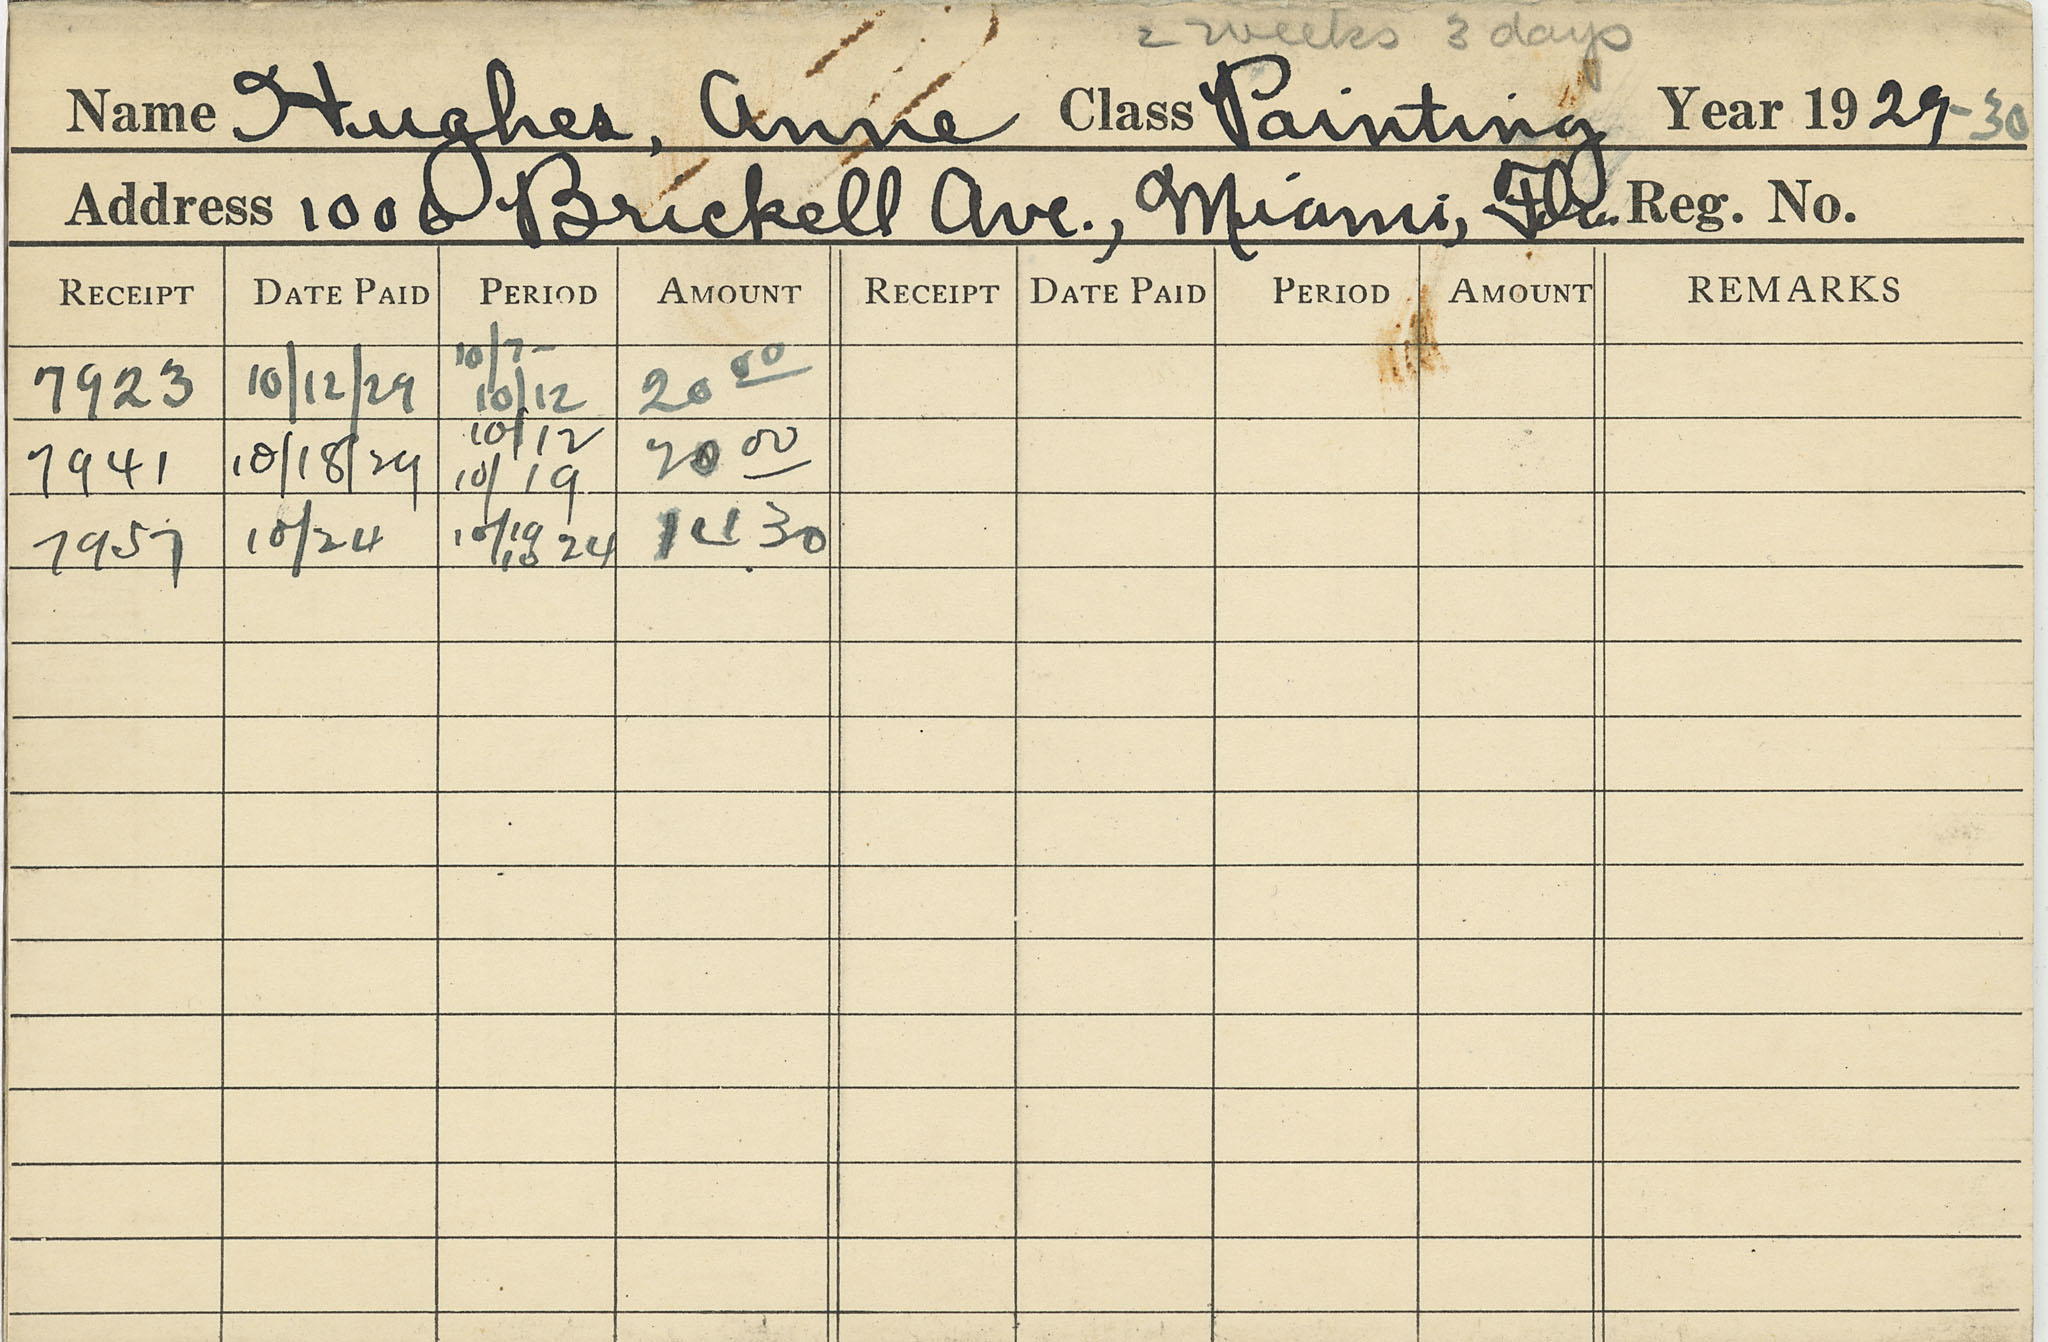 2 weeks 3 days
Name Hughes, Anne Class Painting Year 1929-30
Address 1000 Brickell Ave., Miami, Fla. Reg. No.
RECEIPT DATE PAID PERIOD AMOUNT RECEIPT DATE PAID PERIOD AMOUNT REMARKS
7923 10/12/29 10/7- 10/12 20 00
7941 10/18/29 10/12 10/19 20 00
7957 10/24 10/19 10 24 14 30